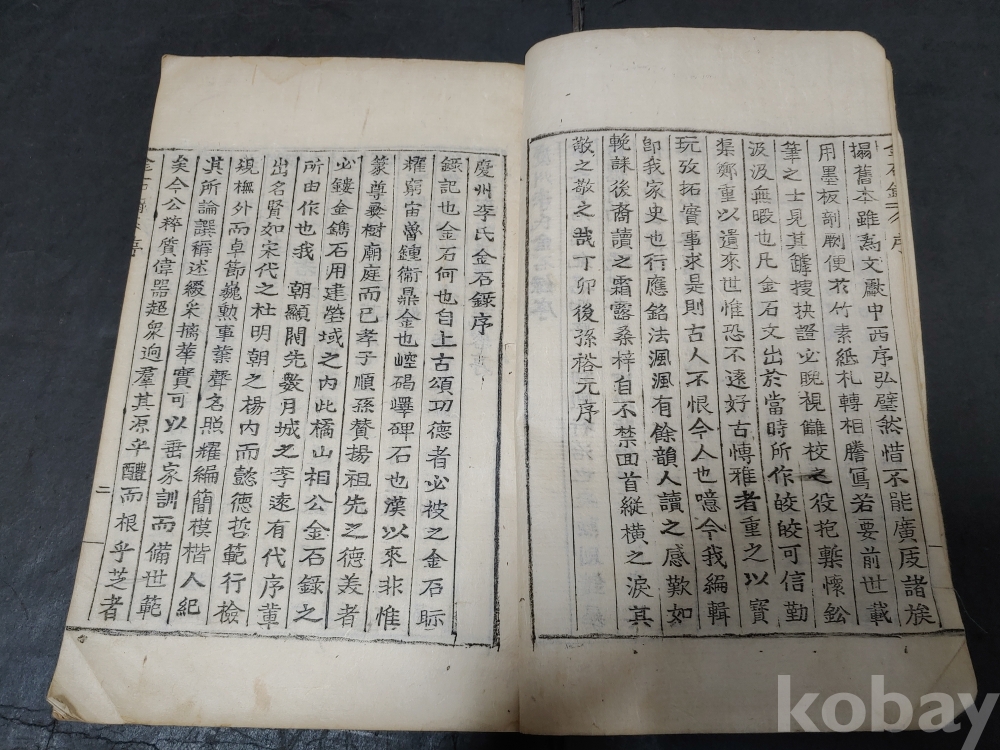 搨舊本雖爲文獻中西序弘璧然惜不能廣及諸族
用墨板剞劂便於竹素紙札轉相謄寫若要前世載
筆之士見其罅搜抉證必睨視讎校之役抱槧懷鈆
汲汲無暇也凡金石文出於當時所作皎皎可信勤
渠鄭重以遺來世惟恐不遠好古慱雅者重之以寶
玩攷拓實事求是則古人不恨今人也噫今我編輯
卽我家史也行應銘法渢渢有餘韻人讀之感歎如
輓誄後裔讀之霜露桑梓自不禁回首縱橫之淚其
敬之敬之哉丁卯後孫格元序
慶州李氏金石錄序
錄記也金石何也自上古頌功德者必被之金石眎
耀窮宙薾鍾衞鼎金也崆碣嶧碑石也漢以來非惟
篆尊彝樹廟庭而已孝子順孫賛揚祖先之德美者
必鏤金鐫石用建塋域之內此橘山相公金石錄之
所由作也我 朝顯閥先數月城之李遠有代序軰
出名賢如宋代之杜明朝之楊內而懿德哲範行檢
規橅外而卓節巍勲事業聲名照耀編簡模楷人紀
其所論譔稱述綴采摛華實可以垂家訓而備世範
矣今公粹質偉器超衆逈羣其源乎醴而根乎芝者
二
kobay